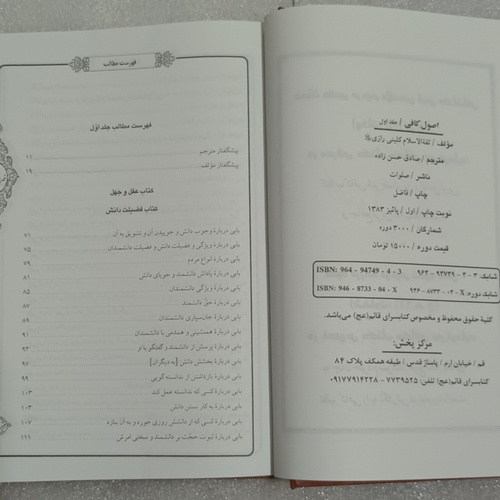 اصول کافی / جلد اول
مؤلف / ثقةالاسلام کلینی رازی
مترجم / صادق حسن زاده
ناشر / صلوات
چاپ / فاضل
نوبت چاپ / اول / پائیز ۱۳۸۳
شمارگان / ۳۰۰۰ دوره
قیمت دوره / ۱۵۰۰۰ تومان
شابک: ۳ - ۴ - ۹۴۷۴۹ - ۹۶۴ ISBN: 964 - 94749 - 4 - 3
شابک دوره: X - ۰۴ - ۸۷۳۳ - ۹۴۶ ISBN: 946 - 8733 - 04 - X
کلیهٔ حقوق محفوظ و مخصوص کتابسرای قائم(عج) می‌باشد.
مرکز پخش:
قم / خیابان ارم / پاساژ قدس / طبقه همکف پلاک ۸۴
کتابسرای قائم(عج) تلفن: ۷۷۳۹۵۲۵ - ۰۹۱۷۷۹۱۴۲۲۸
فهرست مطالب
فهرست مطالب جلد اوّل
پیشگفتار مترجم ۱۱
پیشگفتار مؤلف ۱۹
کتاب عقل و جهل
کتاب فضیلت دانش
بابی دربارهٔ وجوب دانش و جوییدن آن و تشویق به آن ۷۱
بابی دربارهٔ ویژگی و فضیلت دانش و فضیلت دانشمندان ۷۵
بابی دربارهٔ انواع مردم ۷۹
بابی دربارهٔ پاداش دانشمند و جویای دانش ۸۱
بابی دربارهٔ ویژگی دانشمندان ۸۵
بابی دربارهٔ حقّ دانشمند ۸۷
بابی دربارهٔ جان‌سپاری دانشمندان ۸۹
بابی دربارهٔ همنشینی و همدمی با دانشمندان ۹۱
بابی دربارهٔ پرسش از دانشمند و گفتگو با او ۹۳
بابی دربارهٔ بخشش دانش [به دیگران] ۹۷
بابی دربارهٔ بازداشتن از ندانسته گویی ۹۹
بابی دربارهٔ کسی که ندانسته عمل کند ۱۰۳
بابی دربارهٔ به کار بستن دانش ۱۰۳
بابی دربارهٔ کسی که از دانشش روزی خورد و به آن نازد ۱۰۷
بابی دربارهٔ ثبوت حجّت بر دانشمند و سختی امرش ۱۱۱